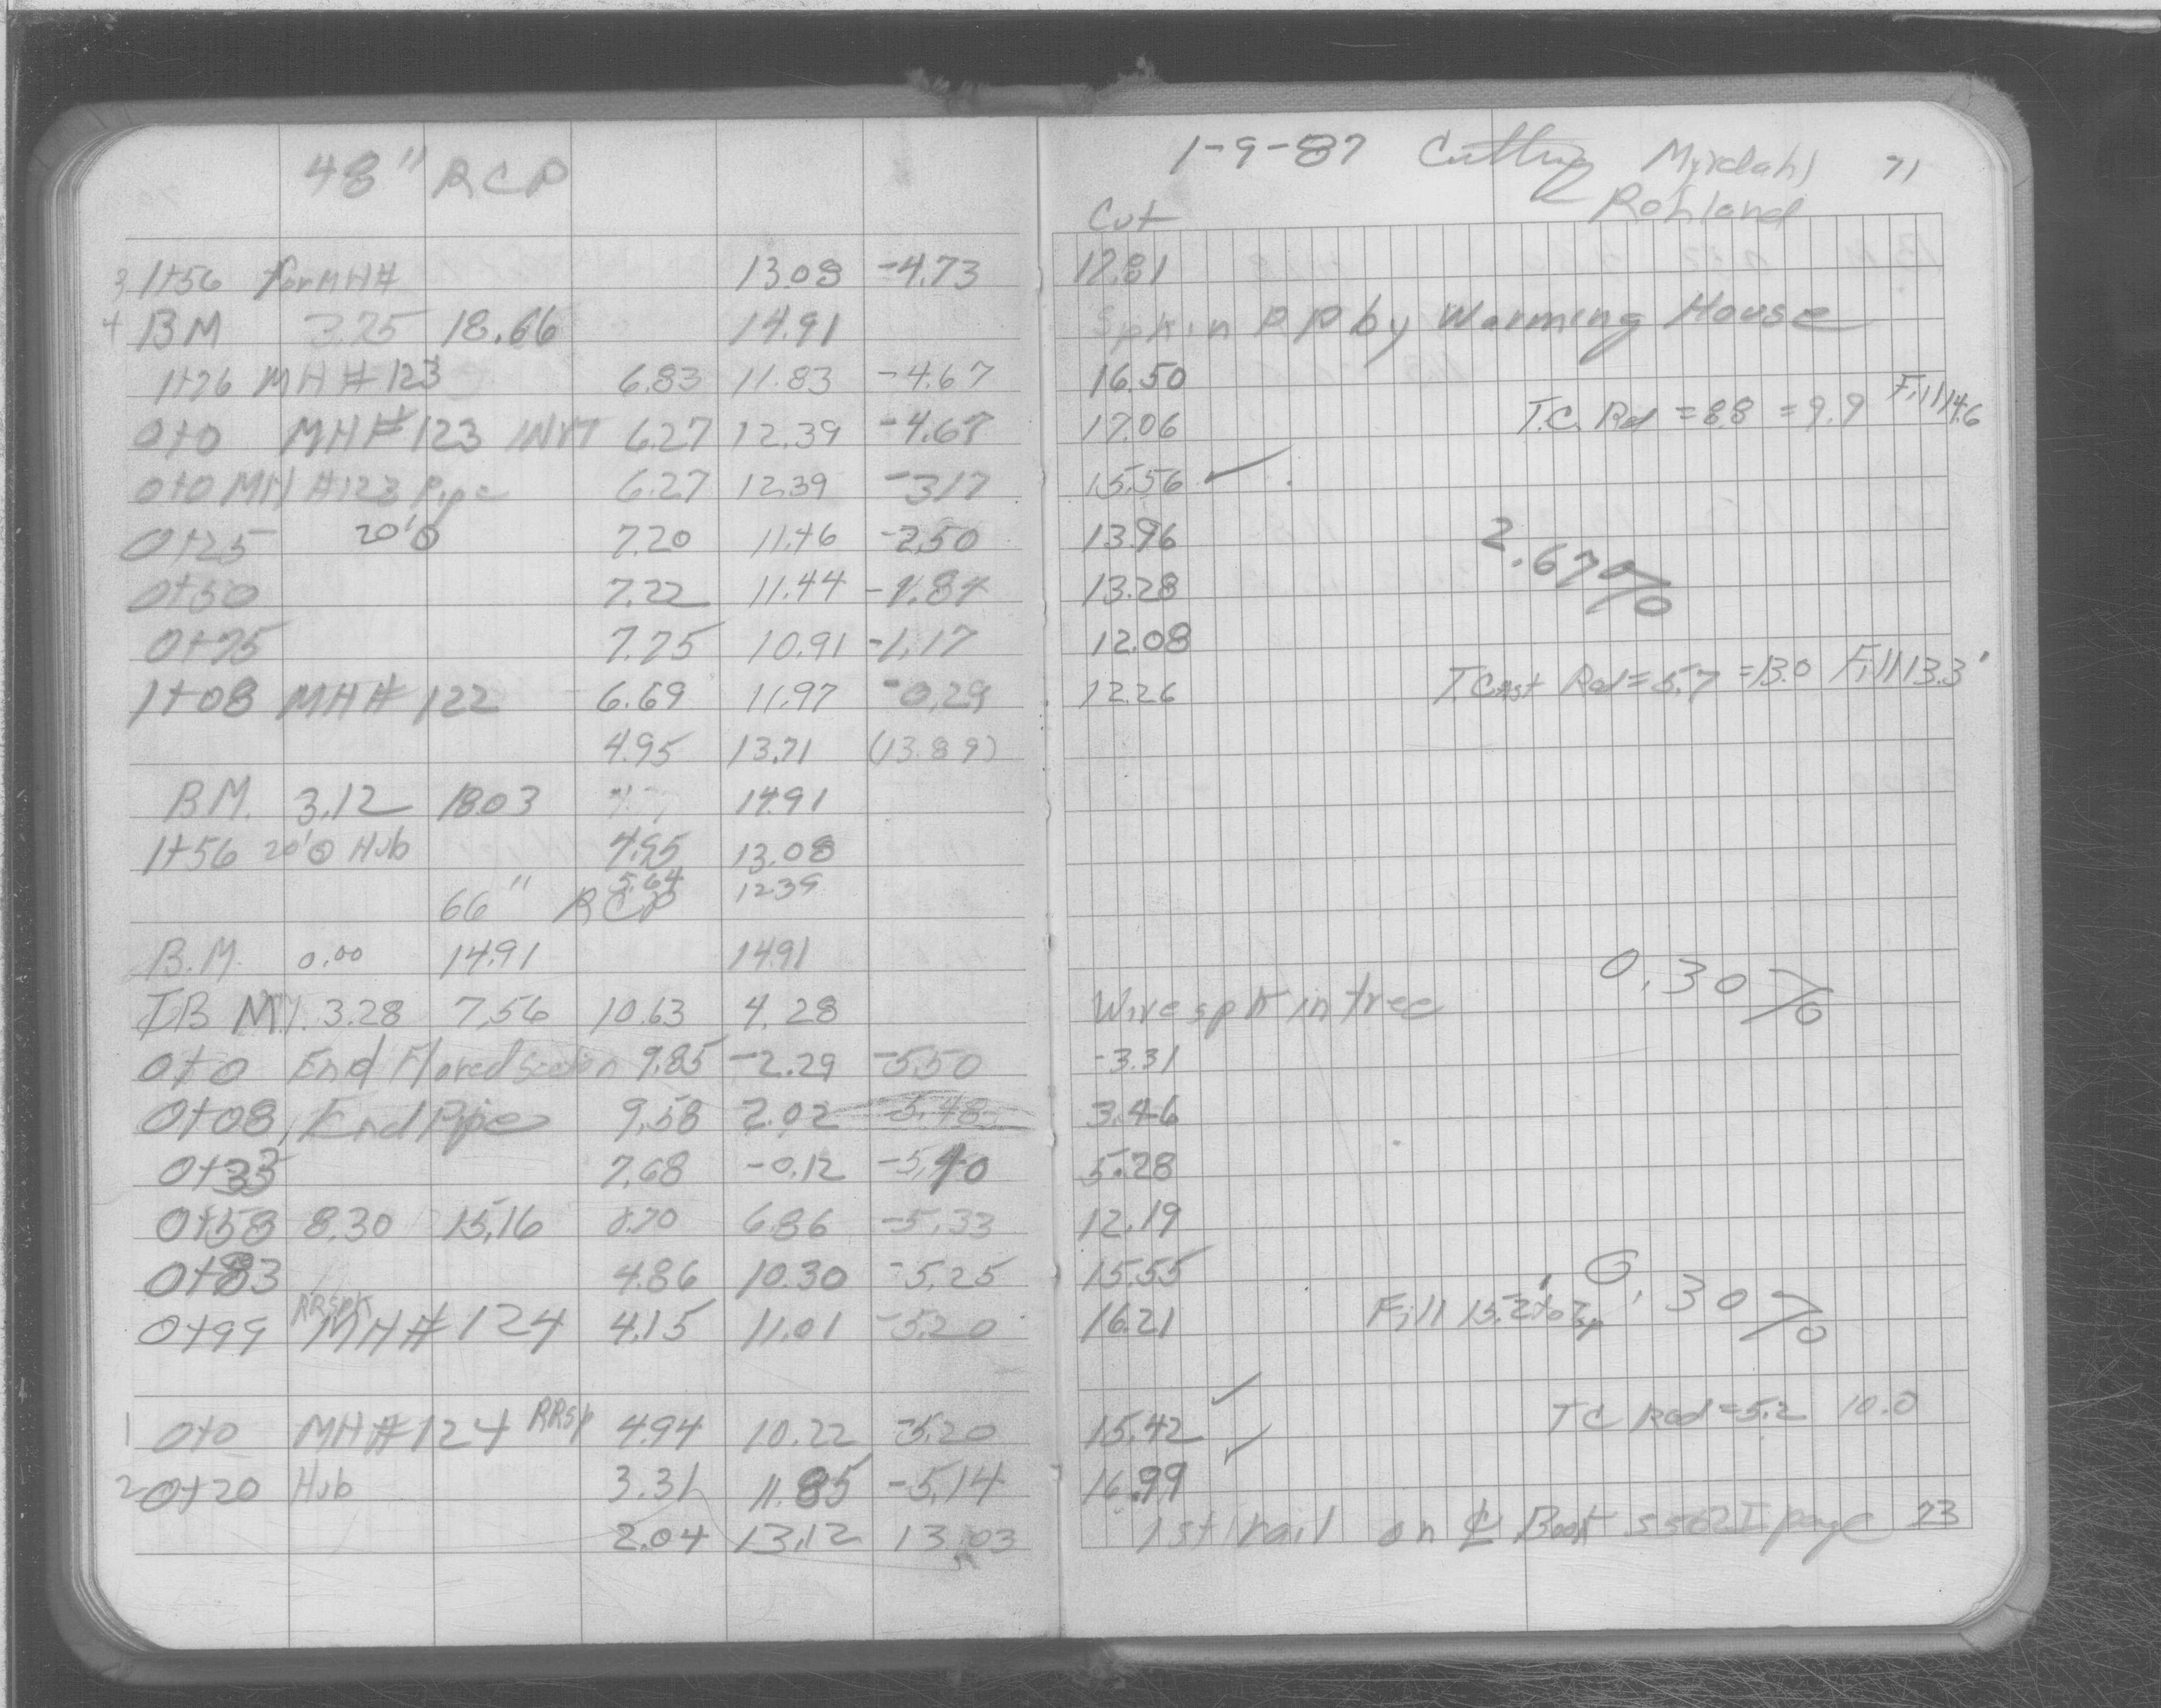 48" RCP
3 1+56 for MH# 13.08 -4.73
4 BM 3.75 18.66 14.91
1+26 MH #123 6.83 11.83 -4.67
0+0 MH#123 INVT 6.27 12.39 -4.67
0+0 MH #123 Pipe 6.27 12.39 -3.17
0+25 20'⊙ 7.20 11.46 -2.50
0+50 7.22 11.44 -1.84
0+75 7.75 10.91 -1.17
1+08 MH# 122 6.69 11.97 -0.29
4.95 13.71 (13.89)
B.M. 3.12 18.03 14.91
1+56 20'⊙ Hub 4.95 13.08
5.64 12.39
66" RCP
B.M. 0.00 14.91 14.91
T.B.M. 3.28 7.56 10.63 4.28
0+0 End Flared Section 9.85 -2.29 -5.50
0+08 End Pipe 9.58 2.02 -5.48
0+33 7.68 -0.12 -5.40
0+58 8.30 15.16 0.70 6.86 -5.33
0+83 4.86 10.30 -5.25
0+99 RRspk MH# 124 4.15 11.01 -5.20
1 0+0 MH#124 RRsp 4.94 10.22 -5.20
2 0+20 Hub 3.31 11.85 -5.14
2.04 13.12 13.03
1-9-87 Cutting Myrdahl 71
Rohland
Cut
17.81
Spk in PP by Warming House
16.50
T.C. Rd = 8.8 = 9.9 Fill 14.6
17.06
15.56 ✓
13.96
2.67%
13.28
12.08
T Cast Rod = 5.7 = 13.0 Fill 13.3'
12.26
0.30%
Wire spk in tree
-3.31
3.46
5.28
12.19
15.55
0.30%
16.21 Fill 15.2' to Top
✓
15.42 TC Rod = 5.2 10.0
16.99 ✓
1st rail on ℄ Book page 23